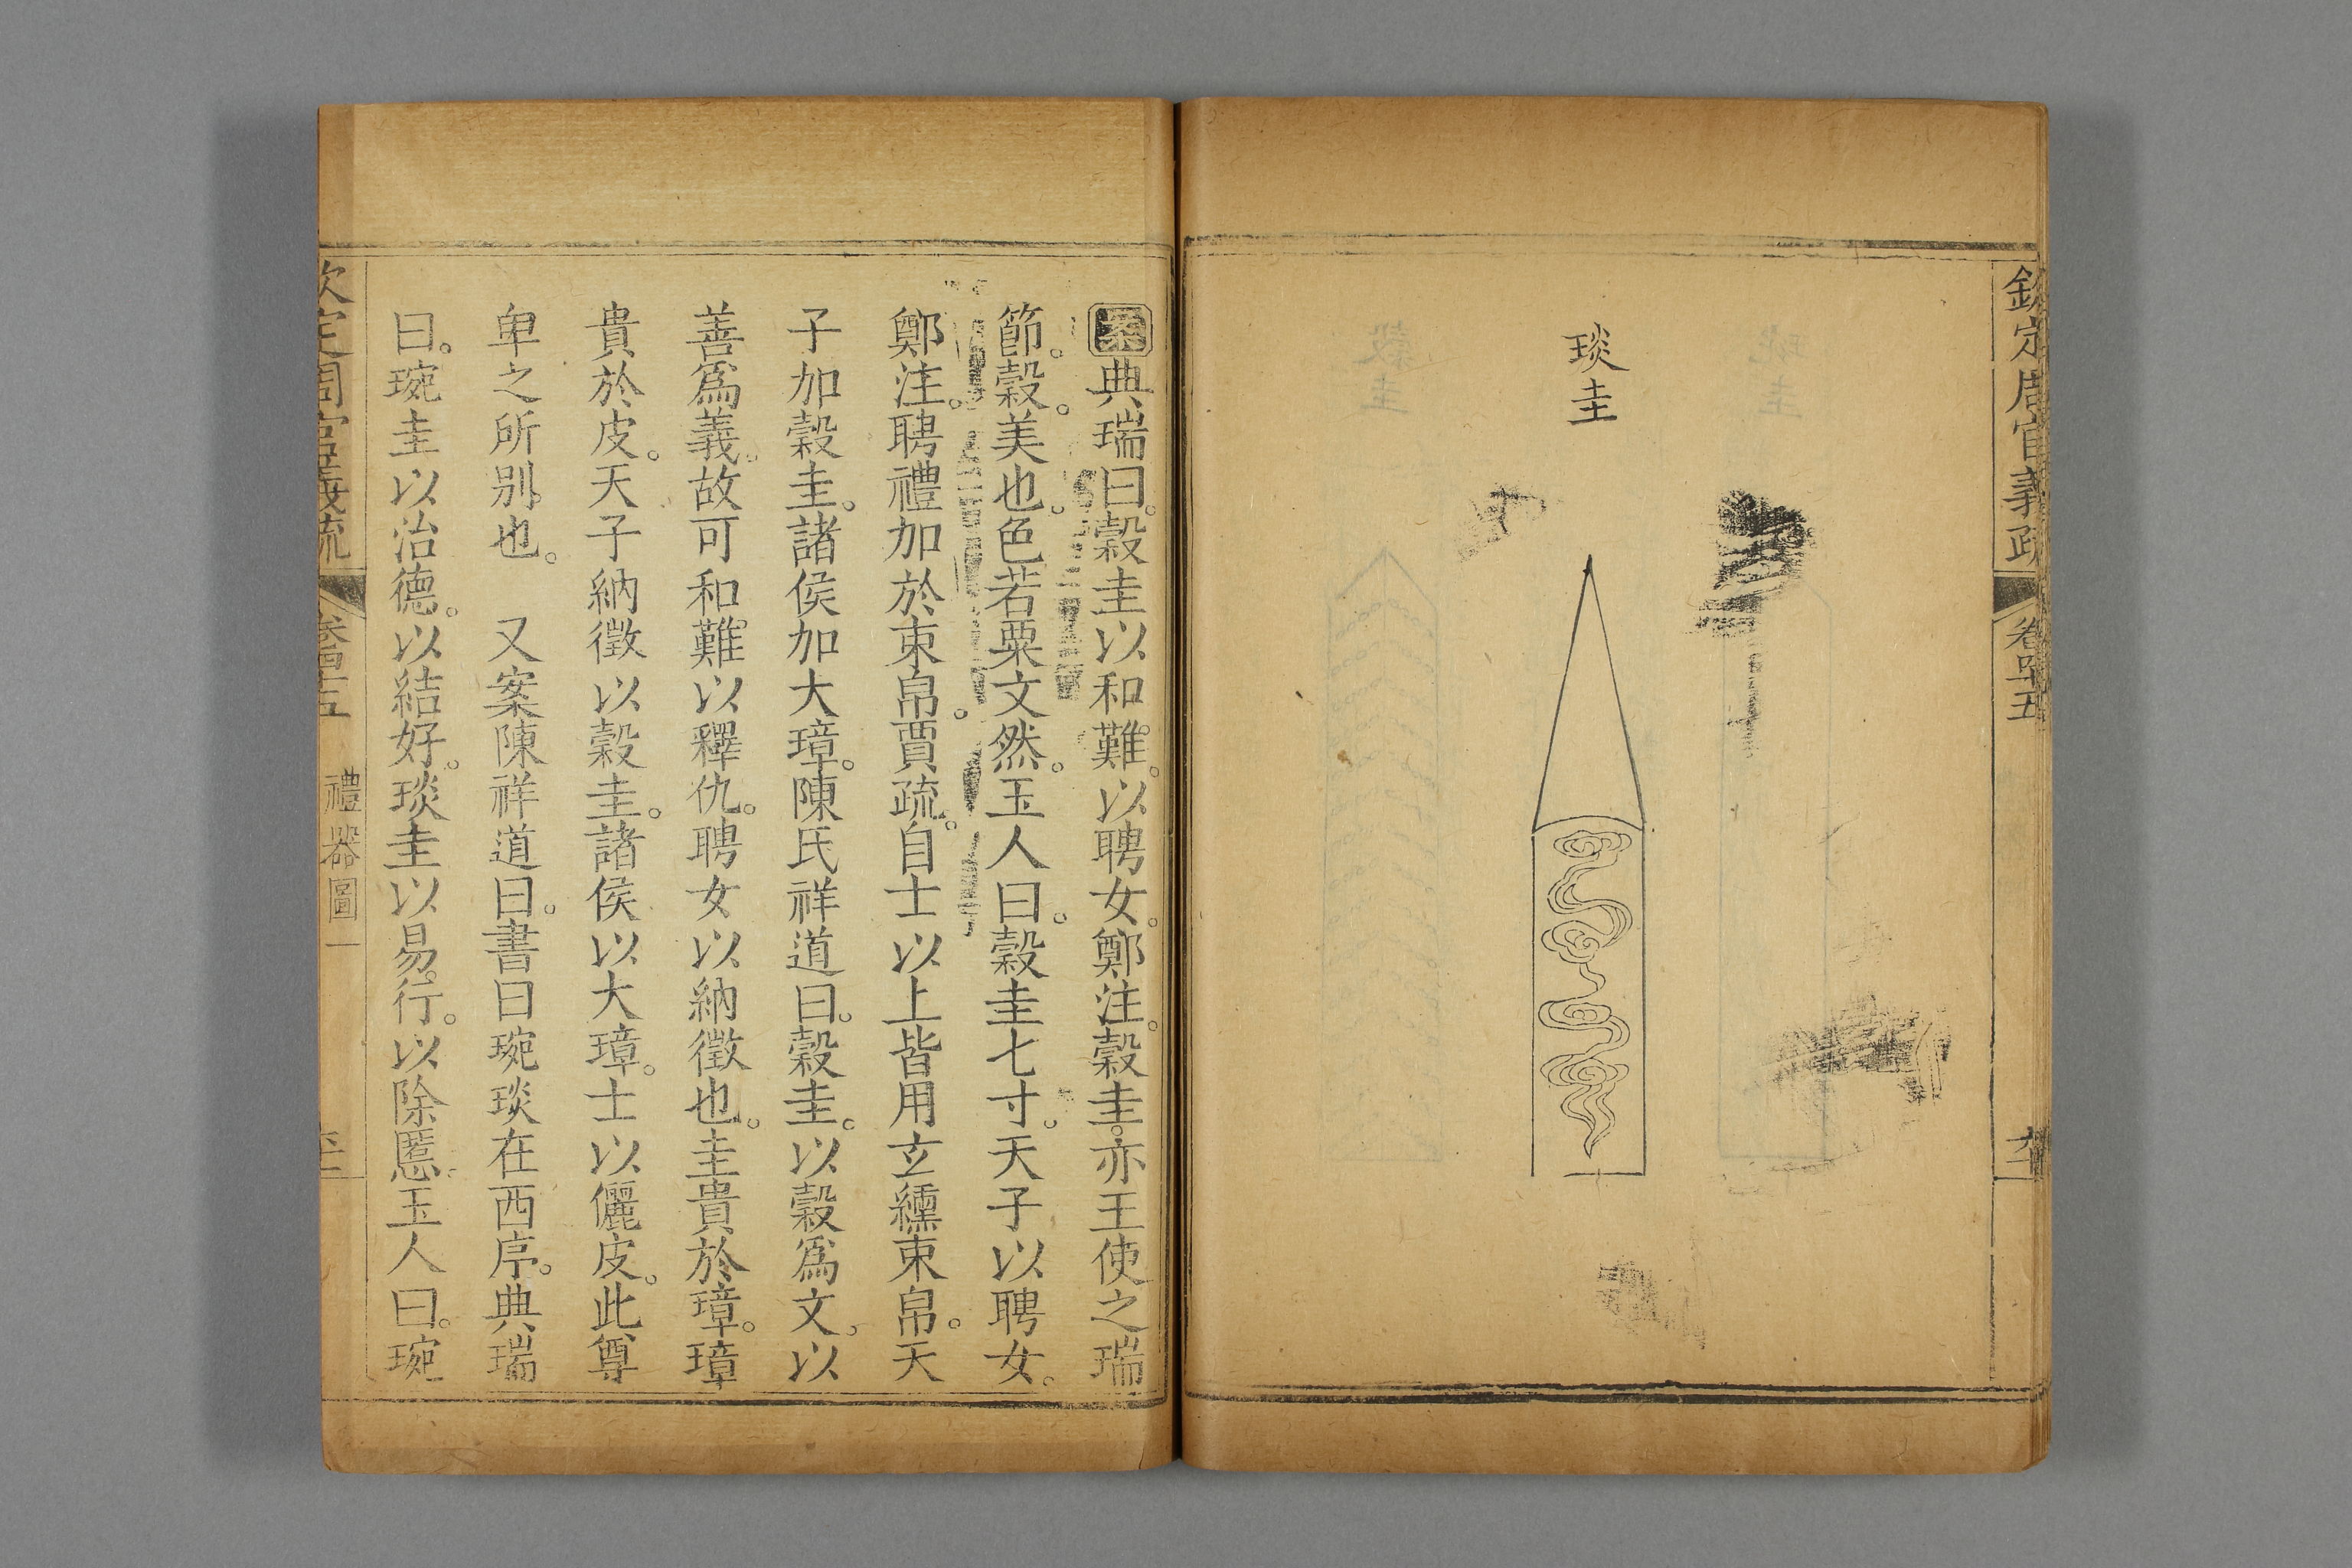 欽定周官義疏 卷四十五
琰圭
案典瑞曰。穀圭以和難。以聘女。鄭注。穀圭。亦王使之瑞
節。穀。美也。色若粟文然。玉人曰。穀圭七寸。天子以聘女。
鄭注。聘禮加於束帛。賈疏。自士以上皆用玄纁束帛。天
子加穀圭。諸侯加大璋。陳氏祥道曰。穀圭。以穀爲文。以
善爲義。故可和難以釋仇。聘女以納徵也。圭貴於璋。璋
貴於皮。天子納徵以穀圭。諸侯以大璋。士以儷皮。此尊
卑之所別也。 又案陳祥道曰。書曰琬琰在西序。典瑞
曰。琬圭以治德。以結好。琰圭以易行。以除慝。玉人曰。琬
欽定周官義疏 卷四十五 禮器圖一